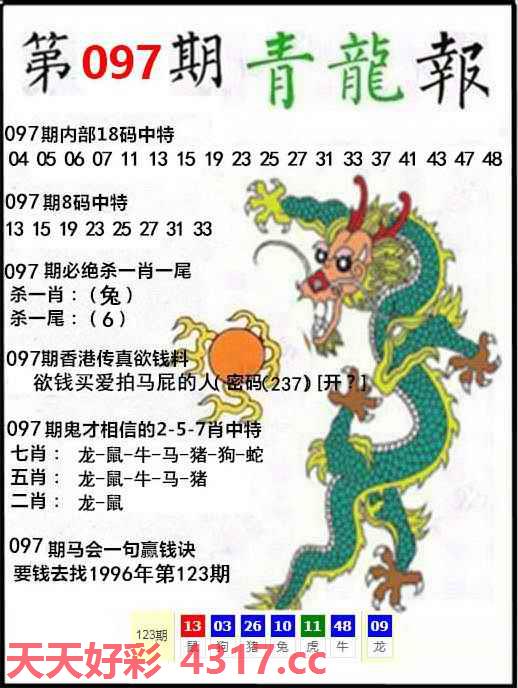 第097期青龍報
097期内部18码中特
04 05 06 07 11 13 15 19 23 25 27 31 33 37 41 43 47 48
097期8码中特
13 15 19 23 25 27 31 33
097期必绝杀一肖一尾
杀一肖：（兔）
杀一尾：（6）
097期香港传真欲钱料
欲钱买爱拍马屁的人（密码（237）[开？]
097期鬼才相信的2-5-7肖中特
七肖： 龙-鼠-牛-马-猪-狗-蛇
五肖： 龙-鼠-牛-马-猪
二肖： 龙-鼠
097期马会一句赢钱诀
要钱去找1996年第123期
123期 13 03 26 10 11 48 09
鼠 狗 猪 兔 虎 牛 龙
天天好彩 4317.cc